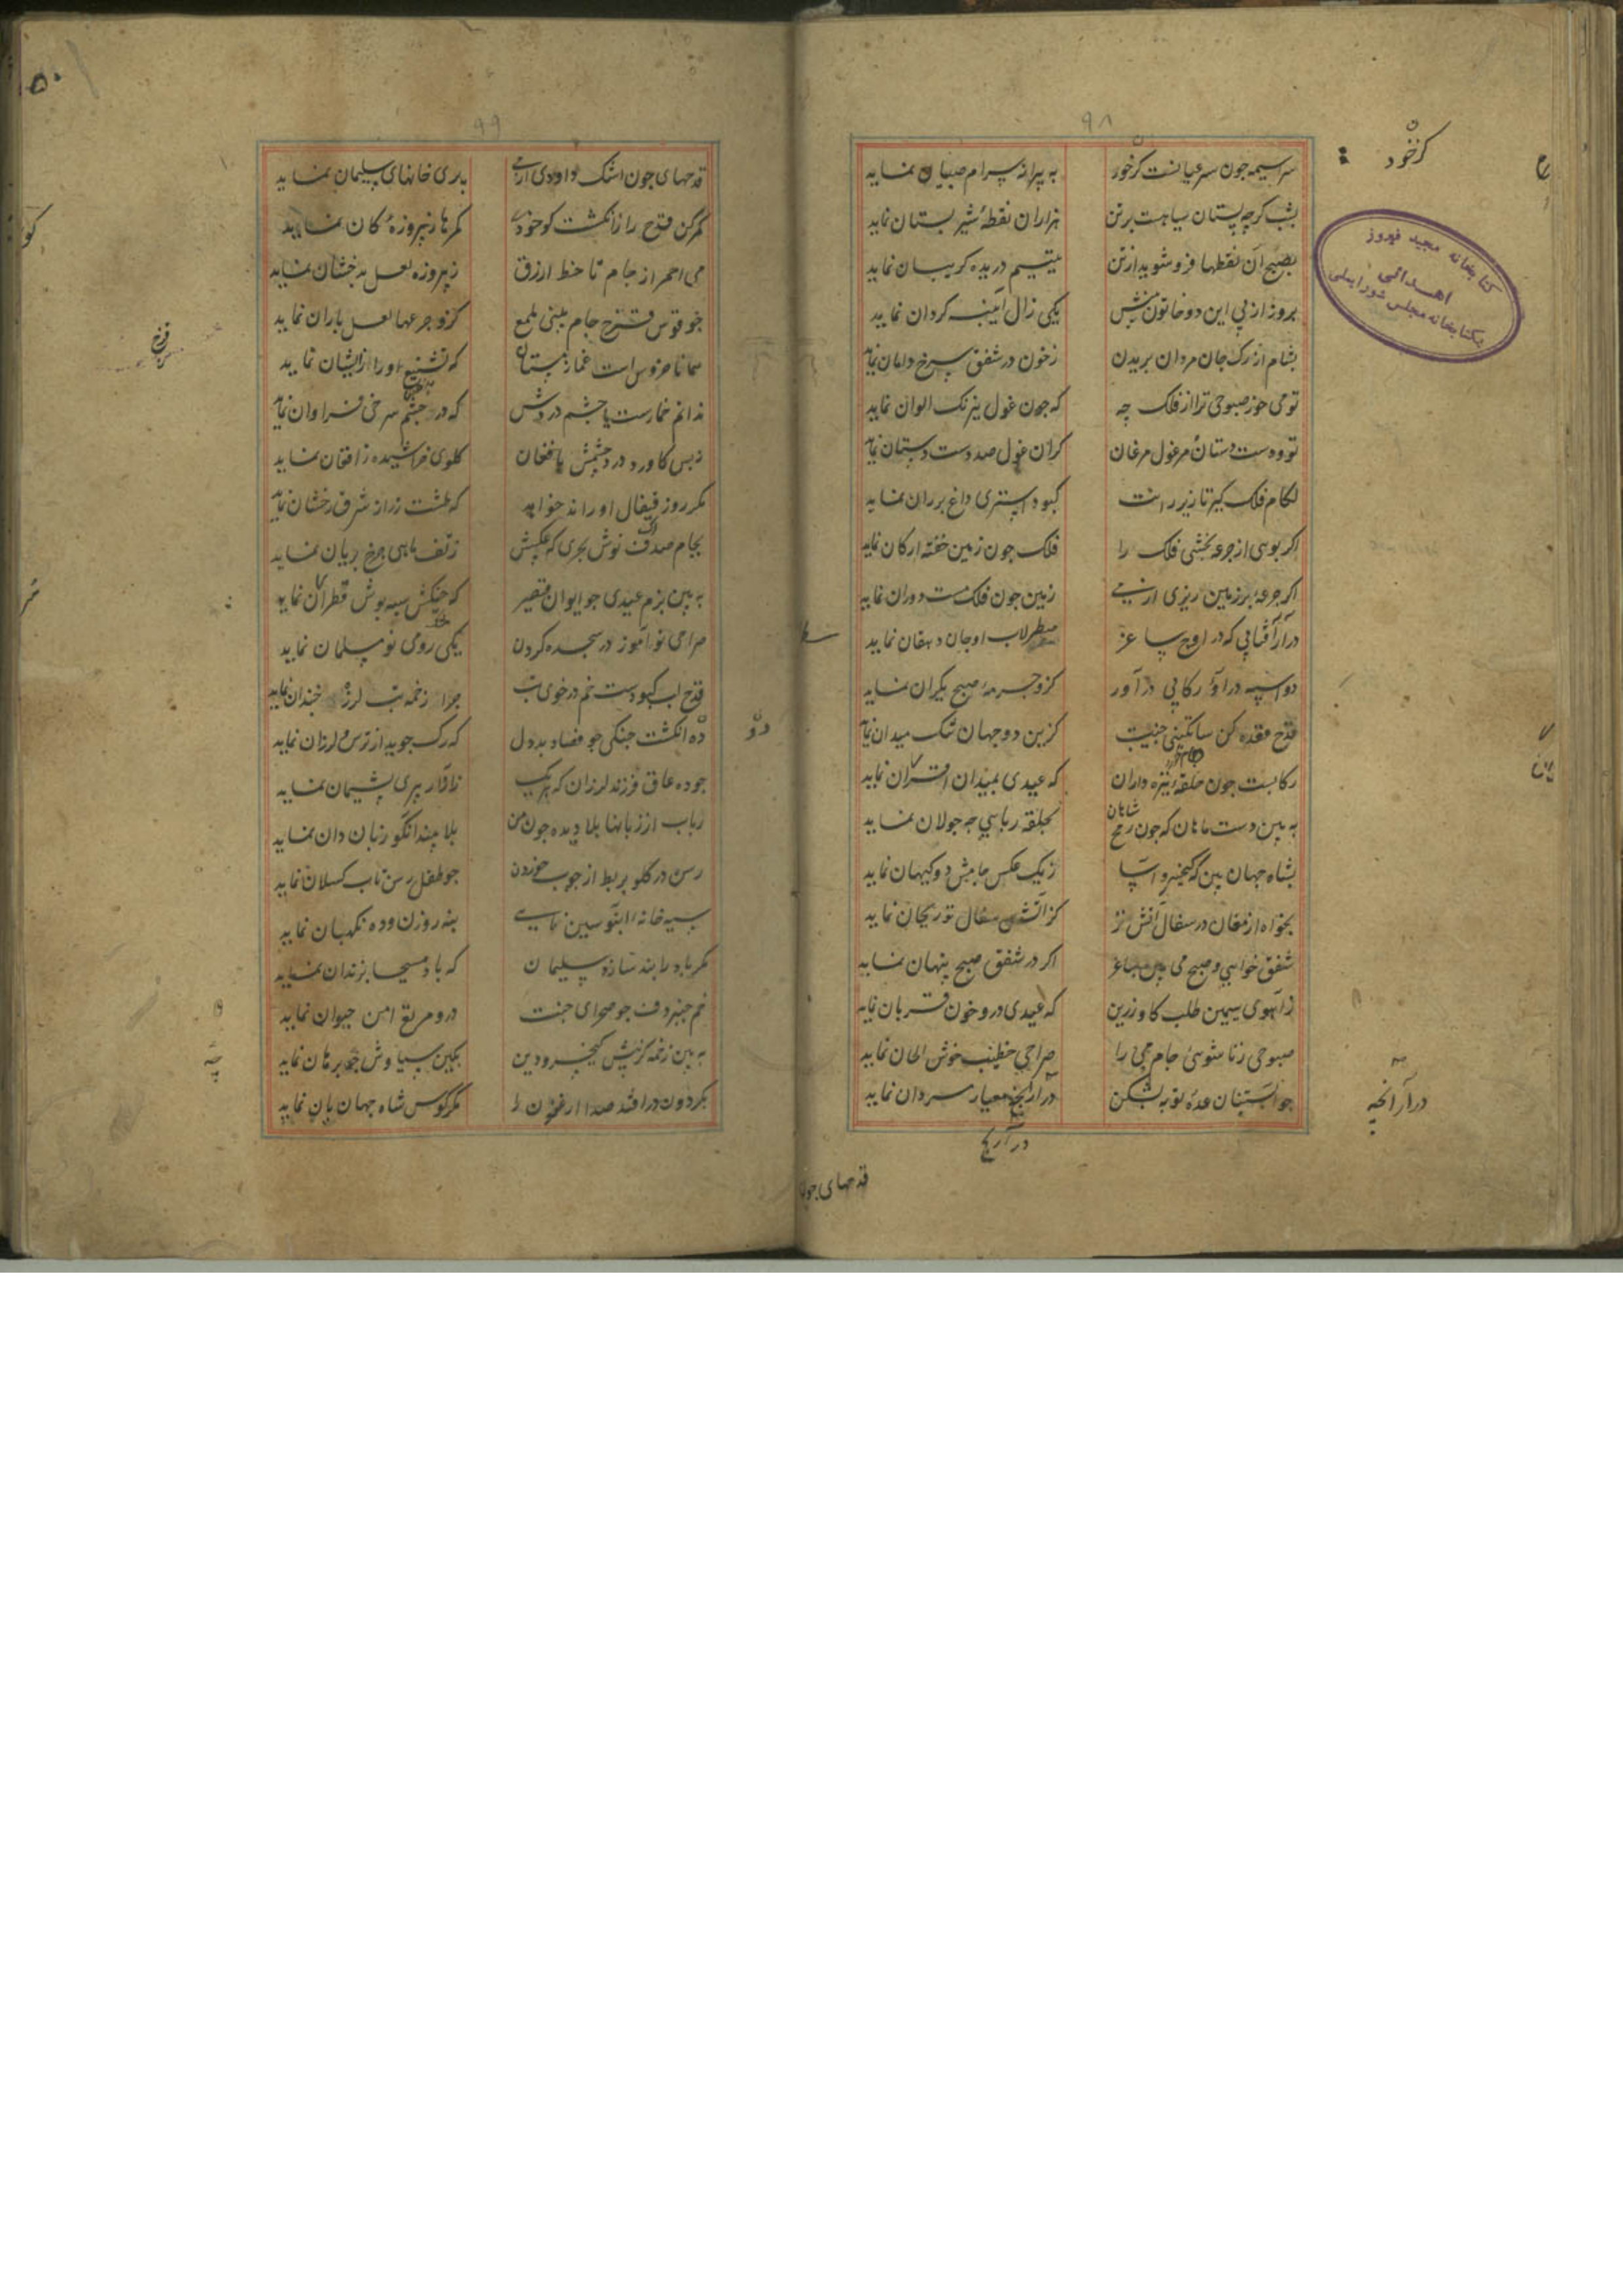 ۹۸
سراسیمه جون سرعیانست کزخور به پیرانه سرام صبیان نماید
بشب کرچه پستان سیاهست برتن هزاران نقطهٔ شیر بستان نماید
بصبح آن نقطها فرو شوید ازتن یتیم دریده کریبان نماید
بروز از پی این دو خاتون بینش یکی زال آینه کردان نماید
بشام از رک جان مردان بریدن زخون در شفق سرخ دامان نماید
تو می خور صبوحی ترا از فلک چه که جون غول نیرنک الوان نماید
تو و دست دستان مرغول مرغان کران غول صد دست دستان نماید
لکام فلک کیر تا زیر رانت کبود استری داغ بر ران نماید
اکر بوی از جرعه بخشی فلک را فلک جون زمین خفته ارکان نماید
اکر جرعه بر زمین ریزی از می زمین جون فلک مست دوران نماید
درآر آفتابی که در اوج ساغر سطرلاب او جان دهقان نماید
دو اسپه درآ و رکابی درآور کزو جرمهٔ صبح یکران نماید
قدح عقده کن ساتکینی جنیبت کزین دو جهان تنک میدان نماید
رکابست جون حلقهٔ نیزه داران که عیدی بمیدان اقران نماید
به بین دست ماهان که جون رمح شاهان بحلقه ربایی جه جولان نماید
بشاه جهان بین که کیخسرو آسا زیک عکس جامش دو کیهان نماید
بخواه از مغان در سفال آتش تز کز آتش سفال تو ریحان نماید
شفق خواهی و صبح می بین ساغر اکر در شفق صبح پنهان نماید
ز آهوی سیمین طلب کاو زرین که عیدی در و خون قربان نماید
صبوحی زناشویی جام می را صراحی خطیب خوش الحان نماید
جو آبستنان عدهٔ توبه بشکن درار انچه معیار مردان نماید
کزخود
درآر آنچه
کتابخانه مجید فیروز
اهدائی
بکتابخانه مجلس شورایملی
قدحهای جون
۹۹
قدحهای جون اشک داودی از می پری خانهای سلیمان نماید
کمرکن قدح را ز انکشت کو خود کمرها ز پیروزهٔ کان نماید
می احمر از جام تا خط ازرق ز پیروزه لعل بدخشان نماید
جو قوس قزح جام بینی ملمع کزو جرعها لعل باران نماید
همانا خروس است غماز مستان که تشنیع او را از ایشان نماید
ندانم خمارست یا جشم دردش که در جشم سرخی فراوان نماید
زبس کاورد درد جشمش بافغان کلوی خراشیده ز افغان نماید
مکر روز قیفال او راند خواهد که طشت زر از شرق رخشان نماید
بجام صدف نوش بحری که عکسش زتف ماهی جرخ بریان نماید
به بین بزم عیدی جو ایوان قیصر که جنکش سیه پوش قطران نماید
صراحی نوآموز در سجده کردن یکی روی نو مسلمان نماید
قدح لب کبودست خم در خوی تب جرا زخمه تب لرزه جندان نماید
ده انکشت جنکی جو فصاد بددل که رک جوید از ترس و لرزان نماید
جو ده عاق فرزند لرزان که هریک ز آزار پیری پشیمان نماید
رباب از زبانها بلا دیده جون من بلا بیند انکو زبان دان نماید
رسن در کلو بربط از جوب خوردن جو طفل رسن تاب کسلان نماید
سیه خانه آبنوسین نایی بنه روزن و ده نکهبان نماید
مکر باد را بند سازد سلیمان که باد مسیحا بزندان نماید
خم جنبر دف جو صحرای جنت درو مرتع امن حیوان نماید
به بین زخمه کز پیش کیخسرو دین بکین سیاوش جو برهان نماید
بکردون در افتد صدا ارغنون را مکر کوس شاه جهان بان نماید